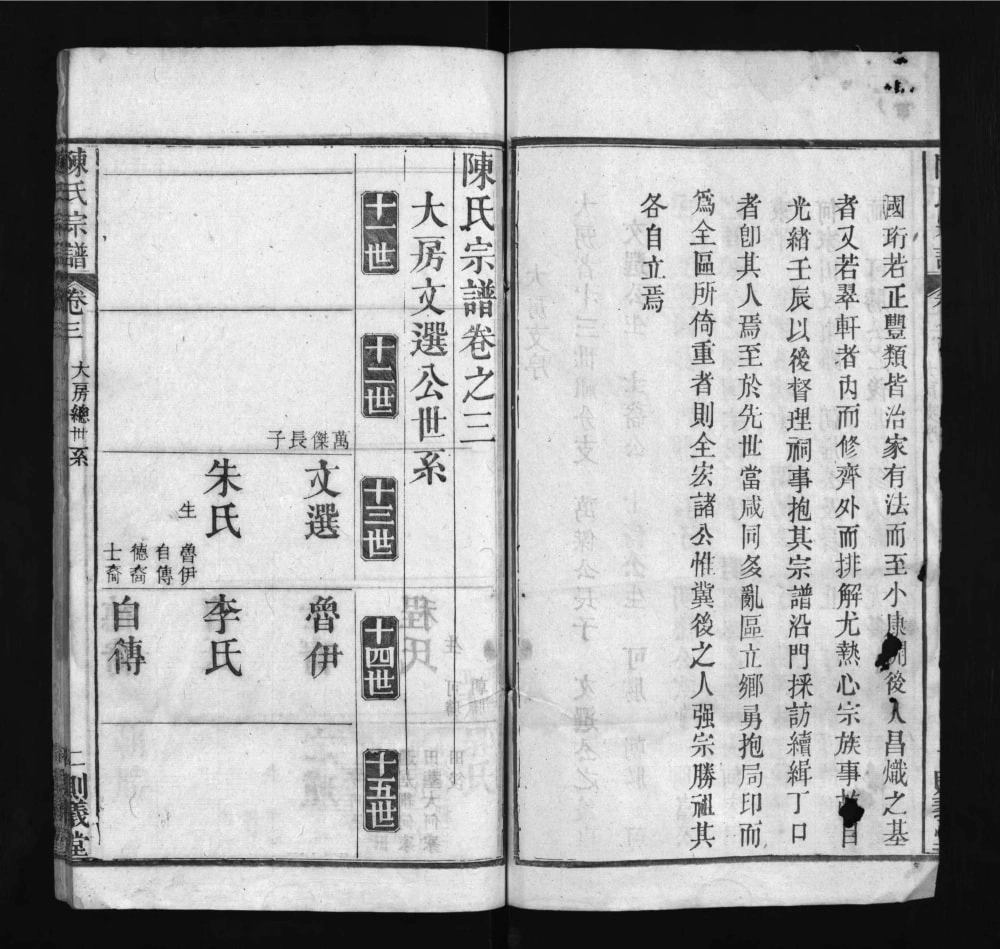 國珩若正豐類皆治家有法而至小康開後人昌熾之基
者又若翠軒者内而修齊外而排解尤熱心宗族事故自
光緒壬辰以後督理祠事抱其宗譜沿門採訪續緝丁口
者卽其人焉至於先世當咸同多亂區立鄉勇抱局印而
爲全區所倚重者則全宏諸公惟冀後之人强宗勝祖其
各自立焉
陳氏宗譜卷之三
大房文選公世系
十一世
十二世
十三世
十四世
十五世
萬傑長子
文選
朱氏
生
魯伊
自傳
德裔
士裔
魯伊
李氏
自傳
陳氏宗譜
卷三
大房總世系
二
則義堂